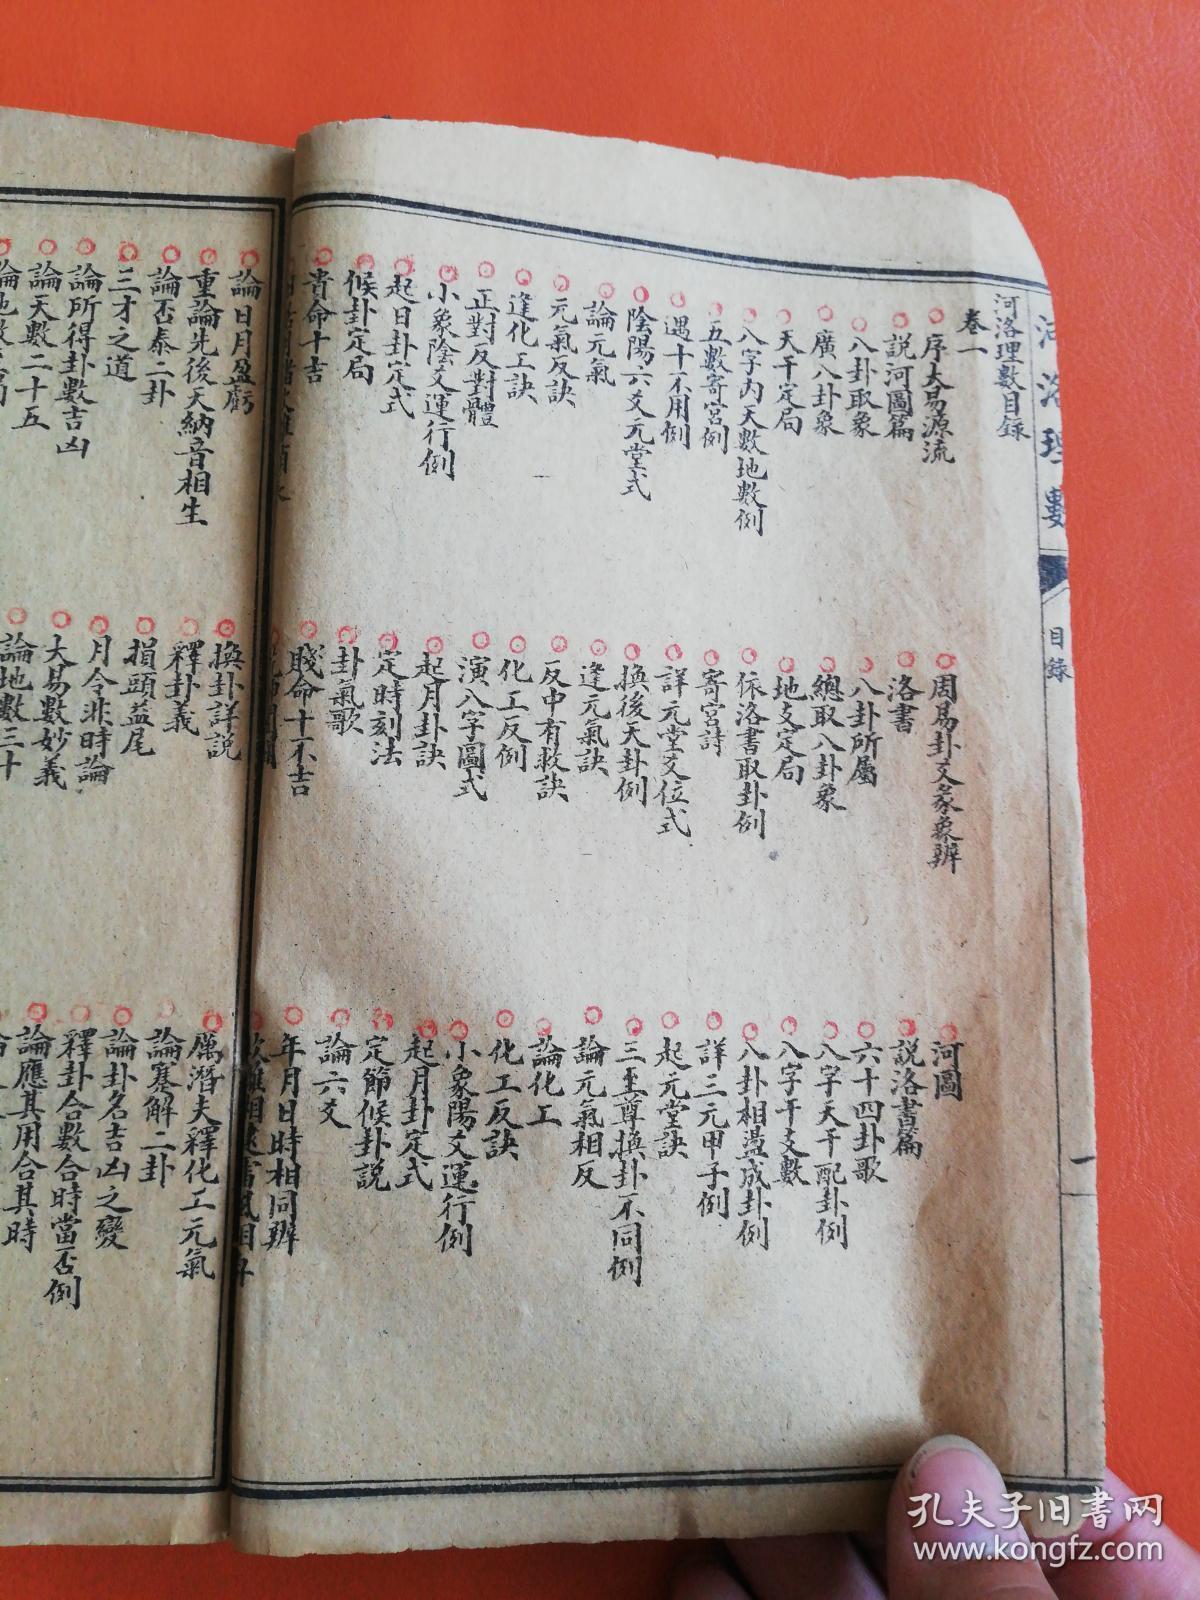 河洛理數
目錄
一
河洛理數目錄
卷一
序大易源流
周易卦爻彖象辨
河圖
説河圖篇
洛書
説洛書篇
八卦取象
八卦所屬
六十四卦歌
廣八卦象
總取八卦象
八字天干配卦例
天干定局
地支定局
八字干支數
八字內天數地數例
依洛書取卦例
八卦相盪成卦例
五數寄宮例
寄宮詩
詳三元甲子例
遇十不用例
詳元堂爻位式
起元堂訣
陰陽六爻元堂式
換後天卦例
三至尊換卦不同例
論元氣
逢元氣訣
論元氣相反
元氣反訣
反中有救訣
論化工
逢化工訣
化工反例
化工反訣
正對反對體
演八字圖式
小象陽爻運行例
小象陰爻運行例
起月卦訣
起月卦定式
起日卦定式
定時刻法
定節候卦説
候卦定局
卦氣歌
論六爻
貴命十吉
賤命十不吉
年月日時相同辨
論日月盈虧
換卦詳説
厲潛夫釋化工元氣
重論先後天納音相生
釋卦義
論蹇解二卦
論否泰二卦
損頭益尾
論卦名吉凶之變
三才之道
月令非時論
釋卦合數合時當否例
論所得卦數吉凶
大易數妙義
論應其用合其時
論天數二十五
論地數三十
孔夫子旧書网
www.kongfz.com